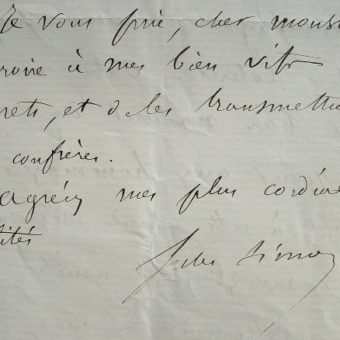 Je vous prie, cher mons
croire à mes bien vifs
rets, et à les transmettre
confrères.
agréez mes plus cordia
ités
Jules Simon